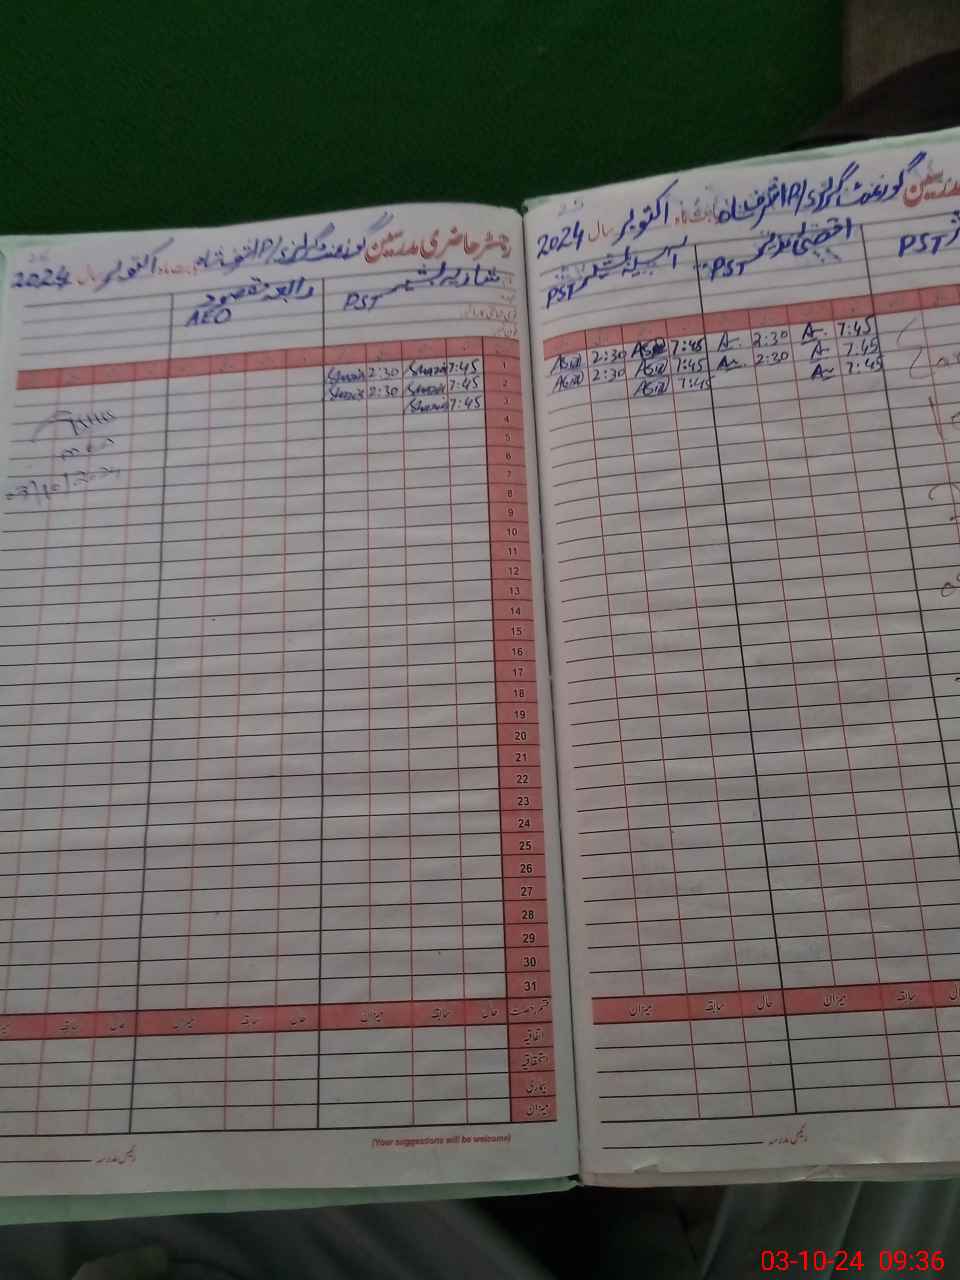 رجسٹر حاضری مدرسین گورنمنٹ گرلز P/S اشرف شاہ بابت ماہ اکتوبر سال 2024
شازیہ بشیر PST
رابعہ مقصود AEO
1 7:45 Shazia 2:30 Shazia
2 7:45 Shazia 2:30 Shazia
3 7:45 Shazia
4
5
6
7
8
9
10
11
12
13
14
15
16
17
18
19
20
21
22
23
24
25
26
27
28
29
30
31
03/10/2024
قسم رخصت حال سابقہ میزان حال سابقہ میزان حال سابقہ
اتفاقیہ
استحقاقیہ
بیماری
میزان
(Your suggestions will be welcome)
رئیس مدرسہ
مدرسین گورنمنٹ گرلز P/S اشرف شاہ بابت ماہ اکتوبر سال 2024
PST
PST
آسیہ بشیر PST
7:45 A 2:30 A 7:45 Asia 2:30 Asia
7:45 A 2:30 A 7:45 Asia 2:30 Asia
7:45 A 7:45 Asia
سابقہ میزان حال سابقہ میزان
رئیس مدرسہ
03-10-24 09:36